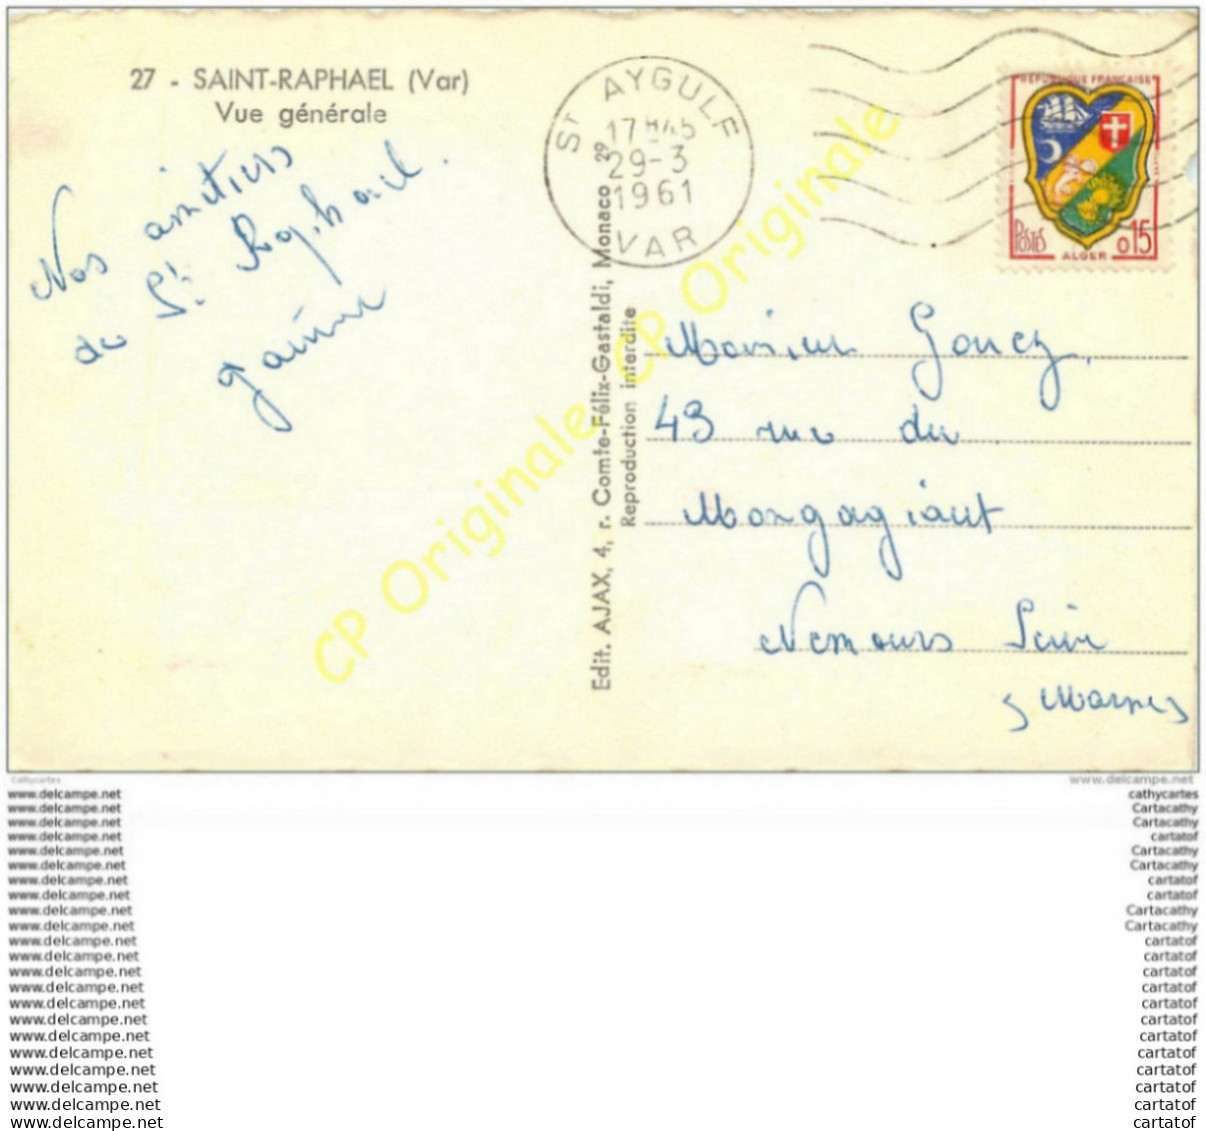 27 - SAINT-RAPHAEL (Var)
Vue générale
Nos amitiés
de St Raphael.
ST AYGULF
17H45
29-3
1961
VAR
REPUBLIQUE FRANCAISE
POSTES
0,15
ALGER
Edit. AJAX, 4, r. Comte-Félix-Gastaldi, Monaco 29
Reproduction interdite
CP Originale CP Originale
Monsieur
43 rue du
Nemours Seine
s Marnes
Cathycartes
www.delcampe.net
www.delcampe.net
www.delcampe.net
www.delcampe.net
www.delcampe.net
www.delcampe.net
www.delcampe.net
www.delcampe.net
www.delcampe.net
www.delcampe.net
www.delcampe.net
www.delcampe.net
www.delcampe.net
www.delcampe.net
www.delcampe.net
www.delcampe.net
www.delcampe.net
www.delcampe.net
www.delcampe.net
www.delcampe.net
www.delcampe.net
www.delcampe.net
www.delcampe.net
www.delcampe.net
cathycartes
Cartacathy
Cartacathy
cartatof
Cartacathy
Cartacathy
cartatof
cartatof
Cartacathy
Cartacathy
cartatof
cartatof
cartatof
cartatof
cartatof
cartatof
cartatof
cartatof
cartatof
cartatof
cartatof
cartatof